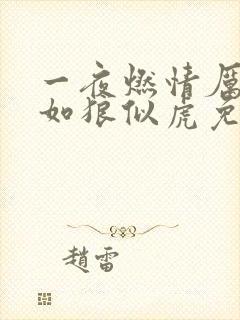 一夜燃情厲
如狼似虎免
趙雷